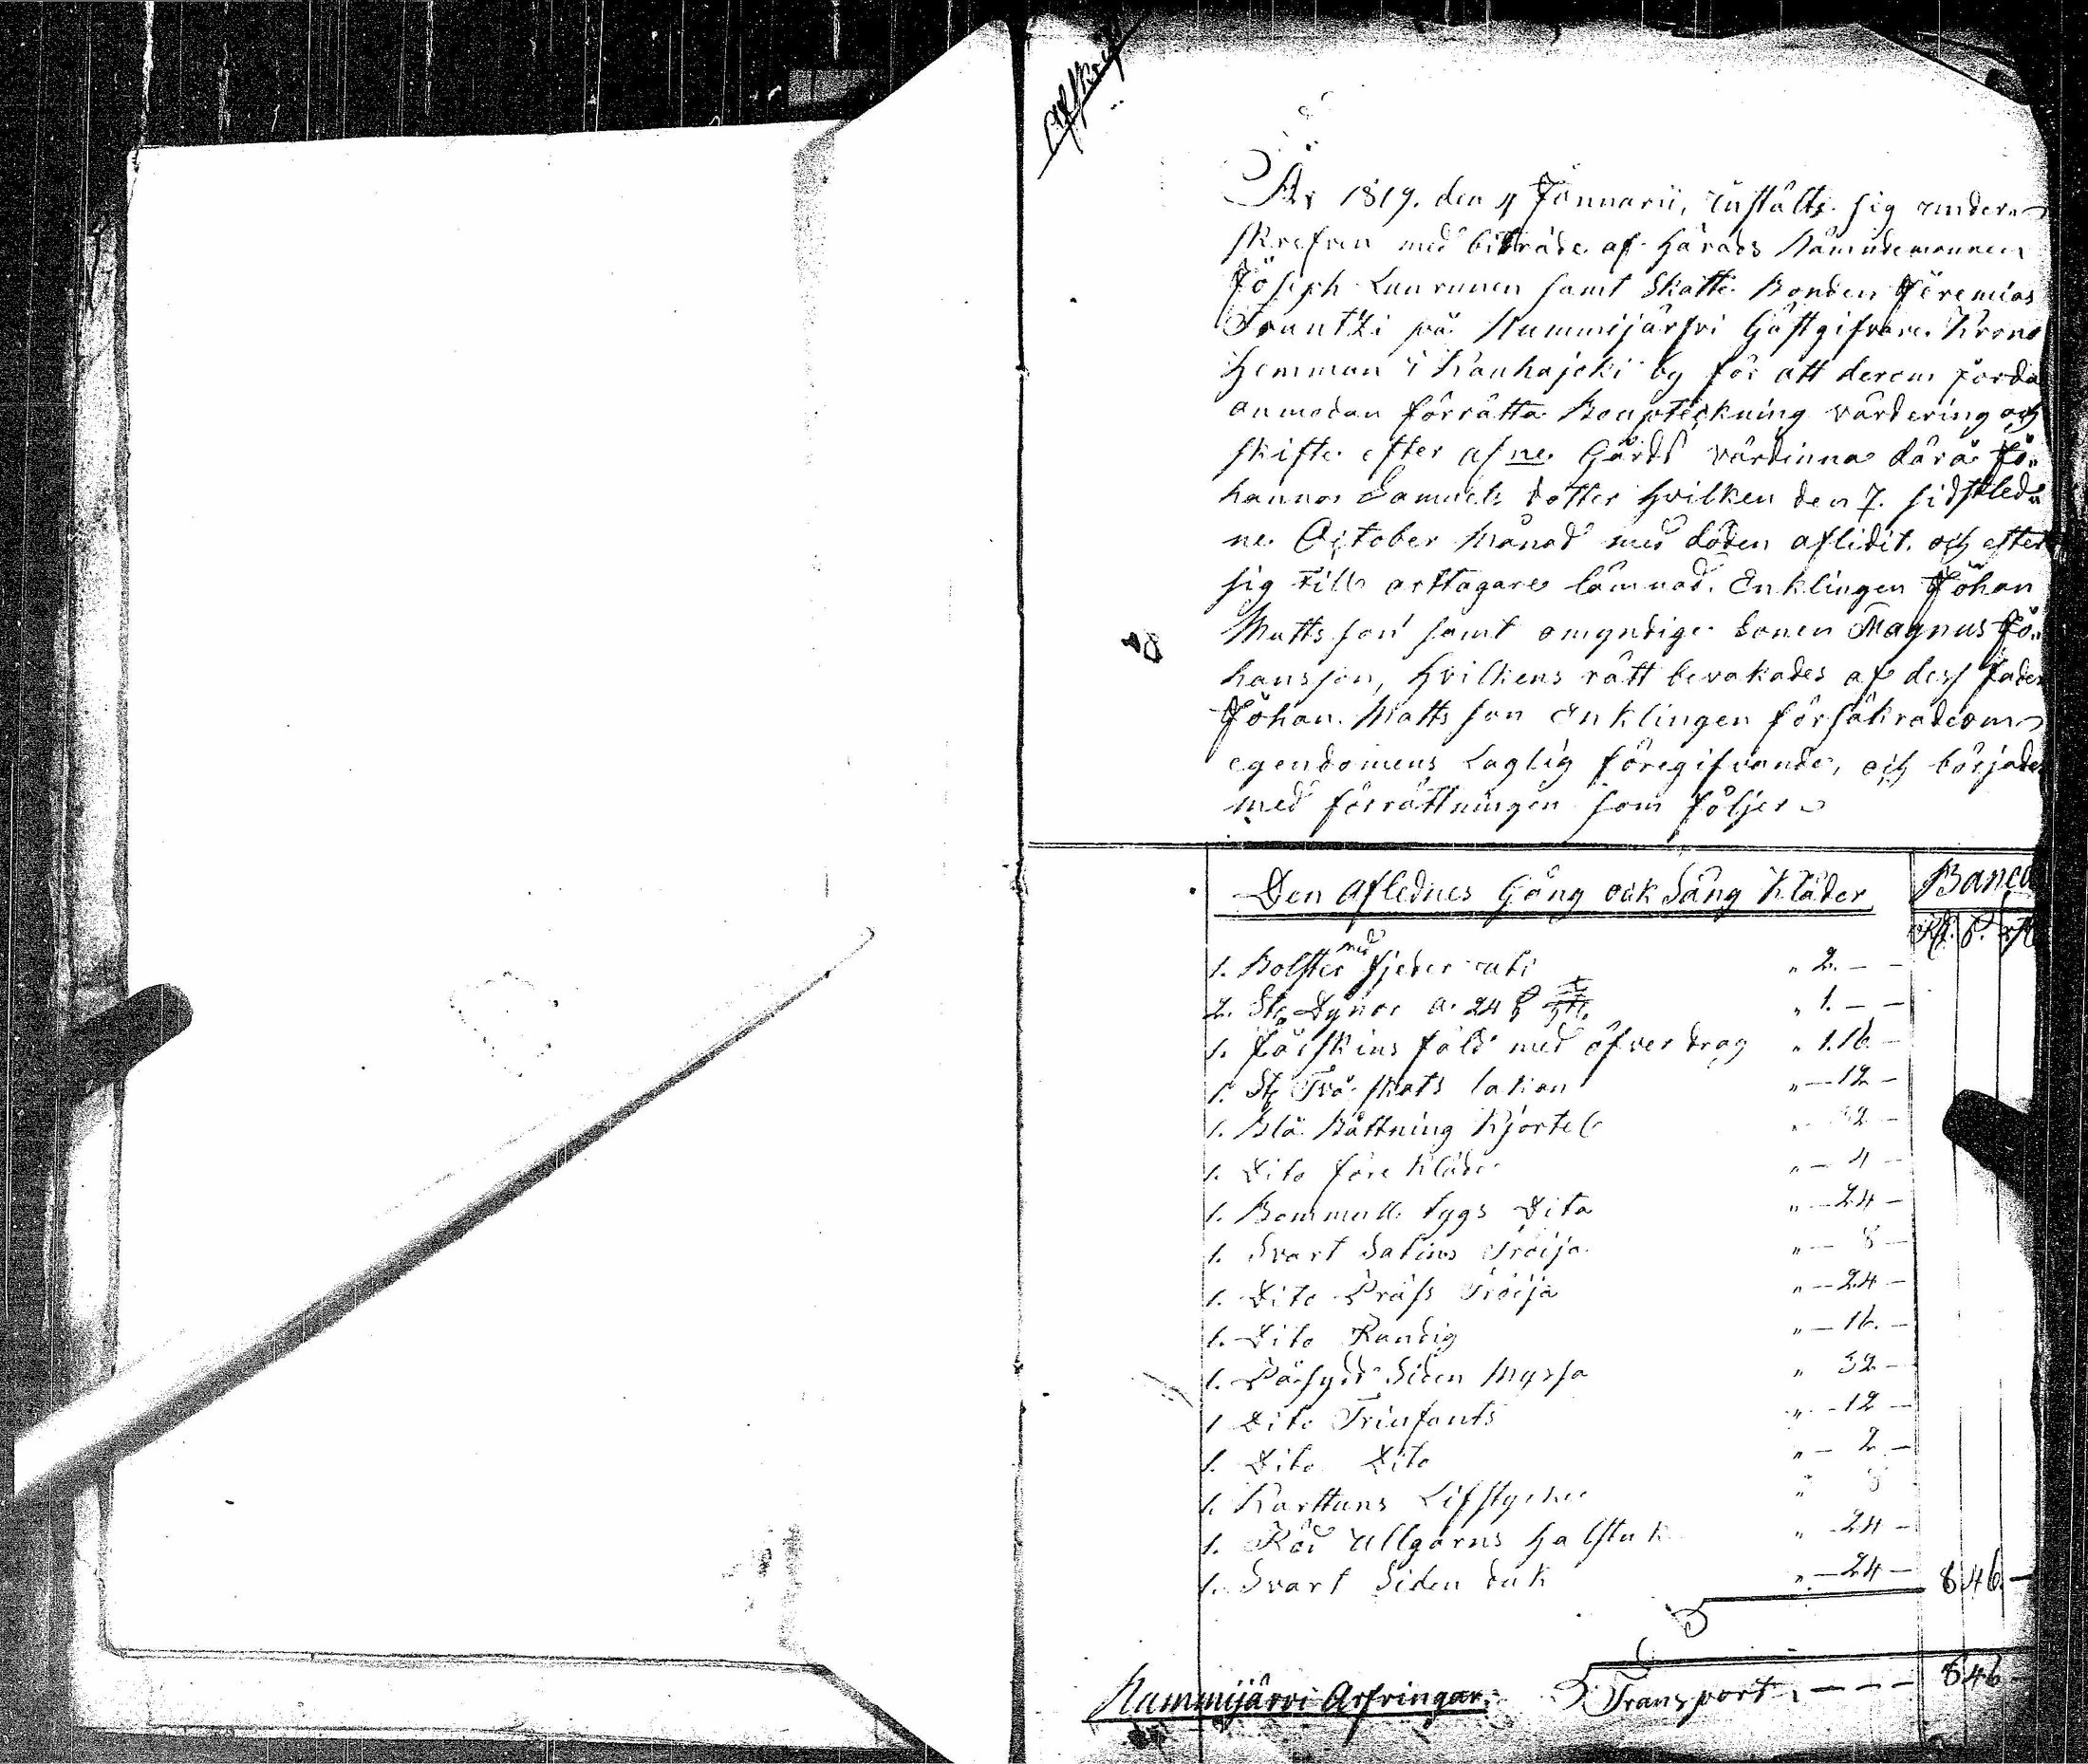 Afskrift
År 1819. den 4 Januarii, instälte sig under-
skrefven med biträde af Härads Nämndemannen
Joseph Luurunen samt Skatte Bonden Jeremias
Frantzi på Nummijärfvi Gästgifvare Krono
Hemman i Kauhajoki by för att derom
anmodan förrätta Bouptekning värdering och
skifte efter afne Gårds värdinna därå Jo-
hanna Samuels dotter Hvilken den 7. sidstled-
ne October Månad med döden aflidit. och efter
sig till arftagare lämnad. Enklingen Johan
Matts son samt omyndige Sonen Magnus Jo-
hansson, Hvilkens rätt bevakades af dess fader
Johan Matts son Enklingen försäkrade om
egendomens Laglig föregifvande, och börjades
med förrättningen som följer
Den Aflednes Gång ock Säng Kläder Banco
Rd. s. rst
1. Bolster med fjeder uti " 2. – –
2. St. Dynor a. 24 s " 1. – –
1. Fårskins fäld med öfver drag " 1.16 –
1. St. Två skafts lakan " – 12 –
1. Blå Råttning Kjortel " 32 –
1. Dito före Kläde " – 4 –
1. Bommulls tygs Dito " – 24 –
1. Svart Satins Tröija " – 8 –
1. Dito Träss Tröija " – 24 –
1. Dito Randig " – 16. –
1. Påsydd Siden Myssa " 32 –
1 Dito Triufants " – 12 –
1. Dito Dito " – 2 –
1. Karttuns Lifstycke " 8
1. Röd Ullgarns Halsduk " 24 –
1. Svart Siden duk " – 24 – 8 46. –
Nummijärvi Arfvingar. Transport – – – – 8 46 –